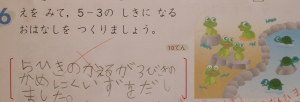 6 えを みて、5-3の しきに なる
おはなしを つくりましょう。
10てん
5ひきのかえるが3びきの
かめにくいずをだし
ました。